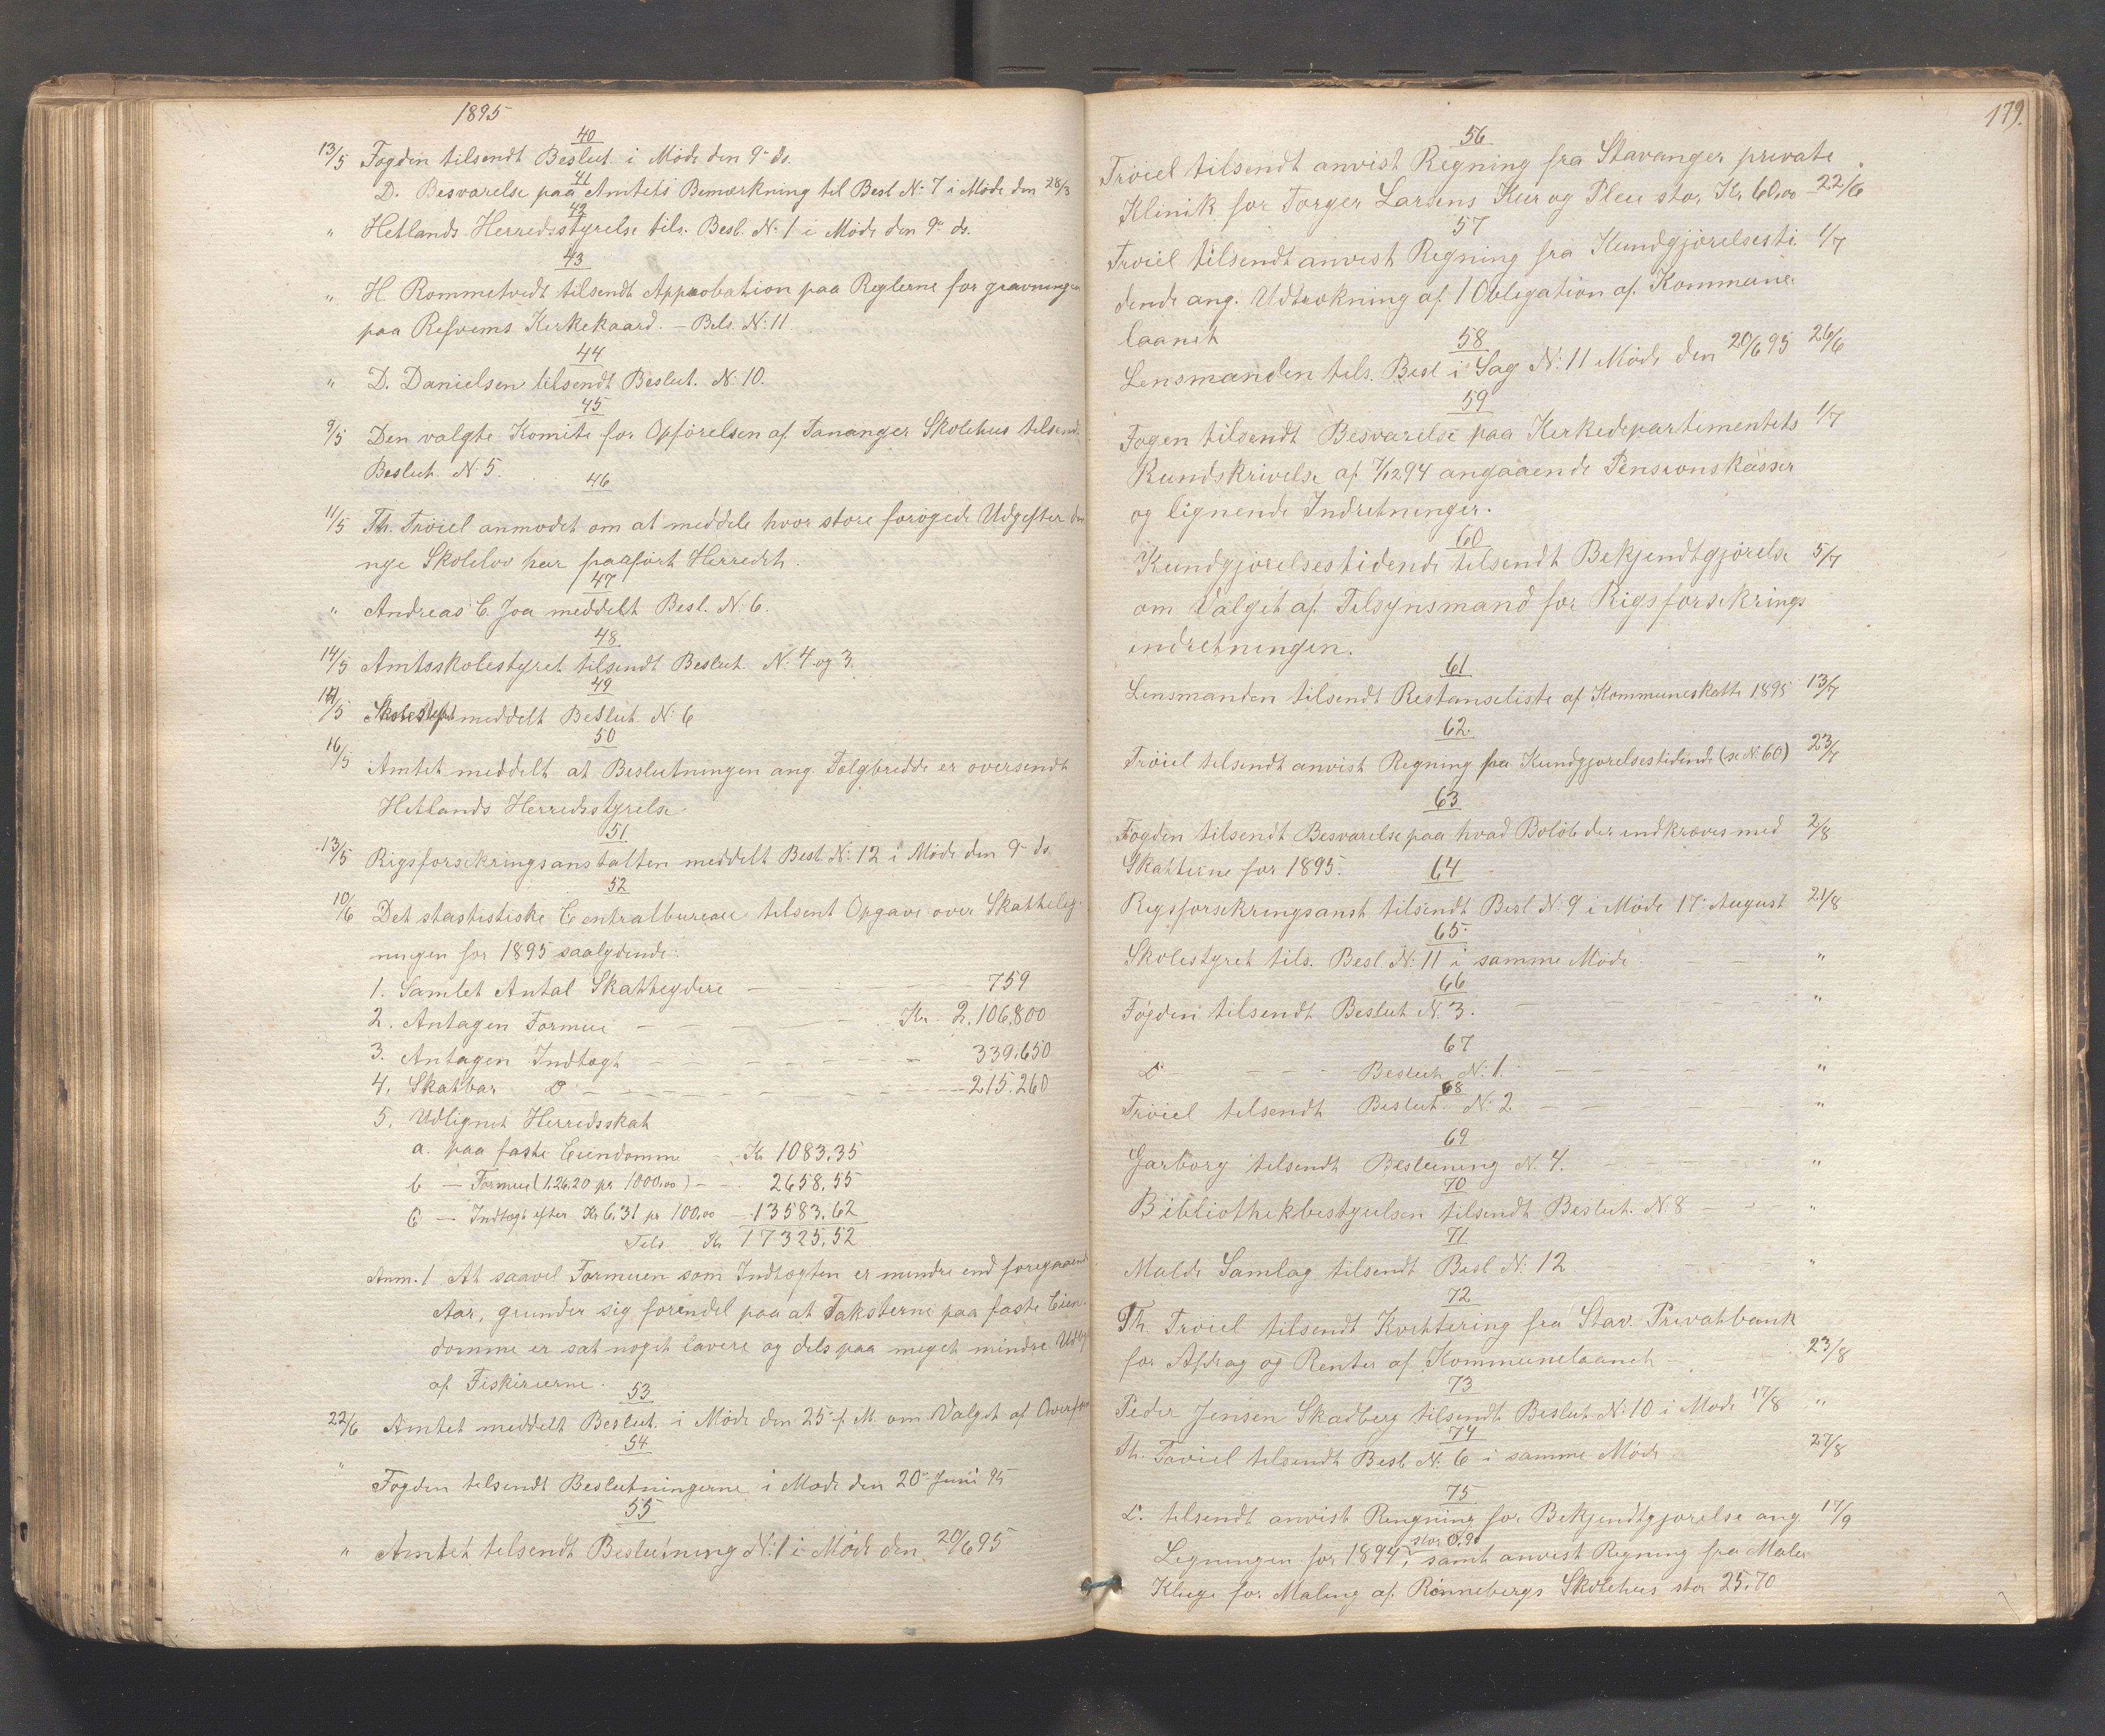 1895
40
13/5 Fogden tilsendt Beslut. i Møde den 9de ds.
41
D. Besvarelse paa Amtets Bemærkning til Besl N: 7 i Møde den 28/3
42
" Hetlands Herredsstyrelse tils. Besl. N: 1 i Møde den 9de ds.
43
" H. Rommetvedt tilsendt Approbation paa Reglerne for gravningen
paa Refsems Kirkekaard. – Bels. N: 11.
44
" D. Danielsen tilsendt Beslut. N: 10.
45
9/5 Den valgte Komite for Opførelsen af Tananger Skolehus tilsend.
Beslut. N: 5.
46
11/5 Th. Trøiel anmodet om at meddele hvor store forøgede Udgifter den
nye Skolelov har paaført Herredet.
47
" Andreas C. Joa meddelt Besl. N: 6.
48
14/5 Amtsskolestyret tilsendt Beslut. N: 4 og 3.
49
14/5 meddelt Beslut N: 6
50
16/5 Amtet meddelt at Beslutningen ang. Fælgbredde er oversendt
Hetlands Herredsstyrelse.
51
13/5 Rigsforsikringsanstalten meddelt Besl. N: 12 i Møde den 9de ds.
52
10/6 Det stastistiske Centralbureau tilsent Opgave over Skattelig-
ningen for 1895 saalydende:
1. Samlet Antal Skatteydere — 759
2. Antagen Formue — Kr. 2,106,800
3. Antagen Indtægt — 339.650
4. Skatbar D — 215.260
5. Udlignet Herredsskat
a. paa faste Eiendomme Kr 1083.35
b — Formue (1,26.20 pr 1000,00) — 2658.55
C — Indtægt efter Kr 6.31 pr 100,00 — 13583.62
Tils Kr 17325.52
Anm. 1 At saavel Formuen som Indtægten er mindre end foregaaende
Aar, grunder sig forendel paa at Taksterne paa faste Eien-
domme er sat noget lavere og dels paa meget mindre
af Fiskerierne.
53
22/6 Amtet meddelt Beslut. i Møde den 25de f. M. om Valget af
54
" Fogden tilsendt Beslutningerne i Møde den 20de Juni 95
55
" Amtet tilsendt Beslutning N: 1 i Møde den 20/6 95
179.
56
Trøiel tilsendt anvist Regning fra Stavanger private
Klinik for Torger Larsens Kur og Pleie stor Kr 60,00 22/6
57
Trøiel tilsendt anvist Regning fra Kundgjørelsesti 1/7
dende ang. Udtrækning af 1 Obligation af Kommune
laanet
58
Lensmanden tils. Besl i Sag N: 11 Møde den 20/6 95 26/6
59
Fogen tilsendt Besvarelse paa Kirkedepartimentets 1/7
Rundskrivelse af 7/12 94 angaaende Pensionskasser
og lignende Indretninger.
60
Kundgjørelsestidende tilsendt Bekjendtgjørelse 5/7
om Valget af Tilsynsmand for Rigsforsikrings
indretningen.
61
Lensmanden tilsendt Restanseliste af Kommuneskatte 1895 13/7
62.
Trøiel tilsendt anvist Regning fra Kundgjørelsestidende (se N: 60) 23/7
63
Fogden tilsendt Besvarelse paa hvad Beløb der indkræves med 2/8
Skatterne for 1895.
64
Rigsforsikringsanst tilsendt Besl N: 9 i Møde 17de August 21/8
65
Skolestyret tils. Besl. N: 11 i samme Møde. "
66
Fogden tilsendt Beslut N: 3. "
67
D — Beslut N: 1. "
68
Trøiel tilsendt Beslut. N: 2 "
69
Garborg tilsendt Beslutning N: 4. "
70
Bibliothekbestyrelsen tilsendt Beslut. N: 8 "
71
Malde Samlag tilsendt Besl N: 12 "
72
Th. Trøiel tilsendt Kvittering fra Stav. Privatbank
for Afdrag og Renter af Kommunelaanet 23/8
73
Peder Jensen Skadberg tilsendt Beslut. N: 10 i Møde 17/8 "
74
Th. Trøiel tilsendt Besl. N: 6 i samme Møde 27/8
75
D. tilsendt anvist Rengning for Bekjendtgjørelse ang 17/9
Ligningen for 1894, stor 0.90 samt anvist Regning fra Maler
Kluge for Maling af Rønnebergs Skolehus stor 25.70